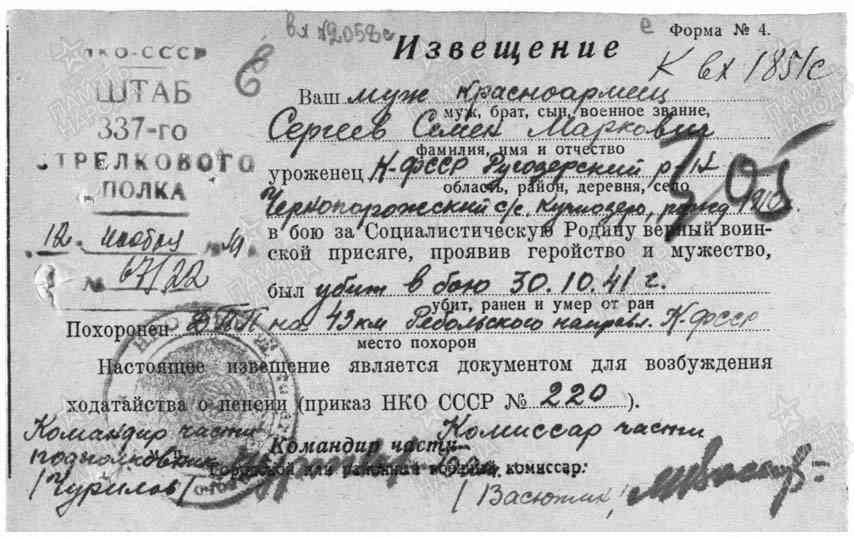 вх №2058с
Форма № 4.
Извещение
К вх 1851с
НКО-СССР
ШТАБ
337-го
СТРЕЛКОВОГО
ПОЛКА
12 ноября 41
№ 67/22
Ваш муж красноармеец
муж, брат, сын, военное звание,
Сергеев Семен Маркович
фамилия, имя и отчество
уроженец К-ФССР Ругозерский р-н
область, район, деревня, село
Чернопорожский с/с.
705
в бою за Социалистическую Родину верный воин-
ской присяге, проявив геройство и мужество,
был убит в бою 30.10.41 г.
убит, ранен и умер от ран
Похоронен на 43 км Ребольского направл. К-ФССР
место похорон
Настоящее извещение является документом для возбуждения
ходатайства о пенсии (приказ НКО СССР № 220 ).
Командир части
подполковник
/Чурилов/
Командир части
Комиссар части
Городской или районный военный комиссар:
/Васютин/
ПАМЯТЬ НАРОДА